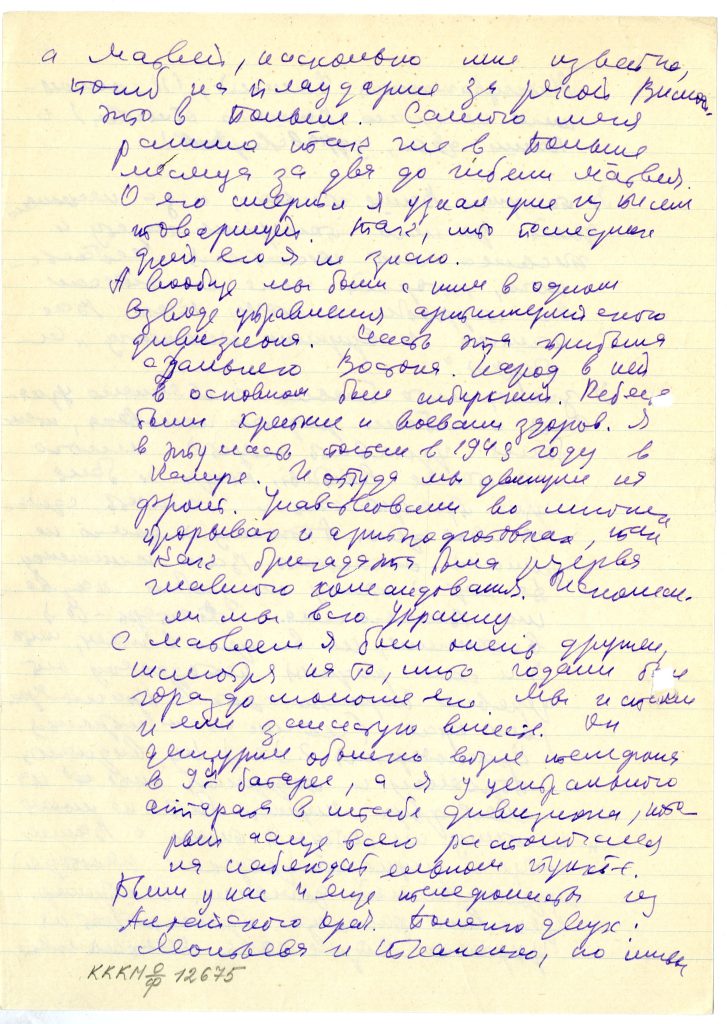 а Матвей, насколько мне известно,
погиб на плацдарме за рекой Вислой,
это в Польше. Самого меня
ранило так же в Польше
месяца за два до гибели Матвея.
О его смерти я узнал уже из писем
товарищей. Так, что последних
дней его я не знаю.
А вообще мы были с ним в одном
взводе управления артиллерийского
дивизиона. Часть эта прибыла
с дальнего Востока. Народ в ней
в основном был сибирский. Ребята
были крепкие и воевали здорово. Я
в эту часть попал в 1943 году в
Калуге. И оттуда мы двинули на
фронт. Участвовали во многих
прорывах и артподготовках, так
как бригада эта была резерва
главного командования. Исколеси-
ли мы всю Украину
С Матвеем я был очень дружен,
несмотря на то, что годами был
гораздо моложе его. Мы и спали
и ели зачастую вместе. Он
дежурил обычно возле телефона
в 9й батарее, а я у центрального
аппарата в штабе дивизиона, кото
рый чаще всего располагался
на наблюдательном пункте.
Были у нас и еще телефонисты из
Алтайского края. Помню двух:
и Ткаченко, но
КККМ О/Ф 12675